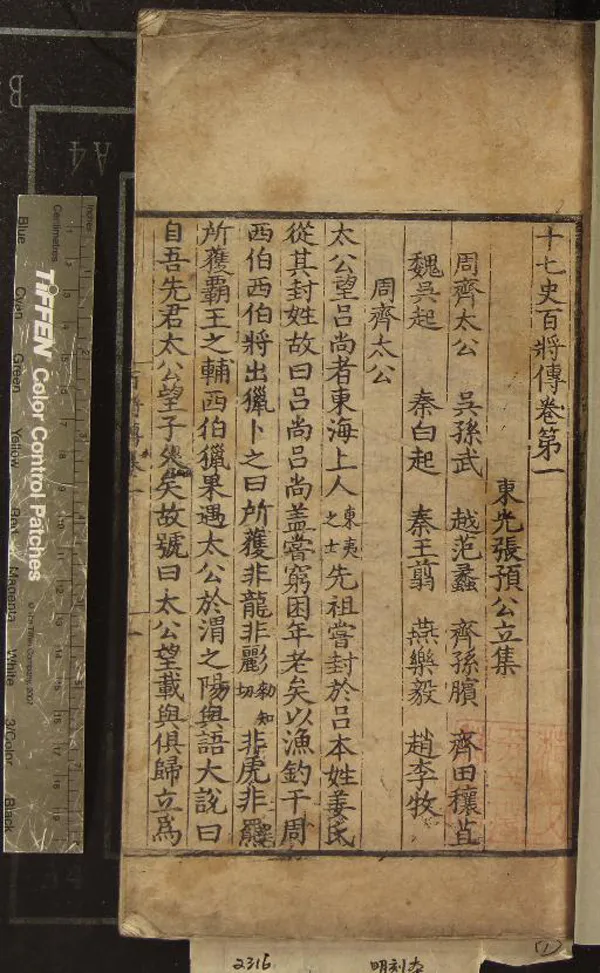 十七史百將傳卷第一
東光張預公立集
周齊太公 吳孫武 越范蠡 齊孫臏 齊田穰苴
魏吳起 秦白起 秦王翦 燕樂毅 趙李牧
周齊太公
太公望呂尚者東海上人東夷之士先祖嘗封於呂本姓姜氏
從其封姓故曰呂尚呂尚蓋嘗窮困年老矣以漁釣干周
西伯西伯將出獵卜之曰所獲非龍非彨勑知切非虎非羆
所獲霸王之輔西伯獵果遇太公於渭之陽與語大說曰
自吾先君太公望子久矣故號曰太公望載與俱歸立爲
TIFFEN Color Control Patches
© The Tiffen Company, 2007
Inches
Centimetres
Blue
Cyan
Green
Yellow
Red
Magenta
White
3/Color
Black
A4
B
2316
明刻本
(1)